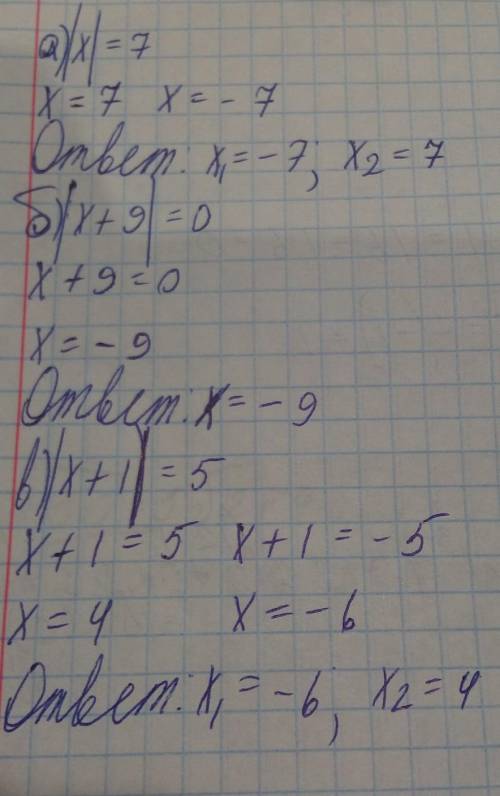 а) |x| = 7
x = 7 x = - 7
Ответ: x₁ = - 7; x₂ = 7
б) |x + 9| = 0
x + 9 = 0
x = - 9
Ответ: x = - 9
в) |x + 1| = 5
x + 1 = 5 x + 1 = - 5
x = 4 x = - 6
Ответ: x₁ = - 6; x₂ = 4